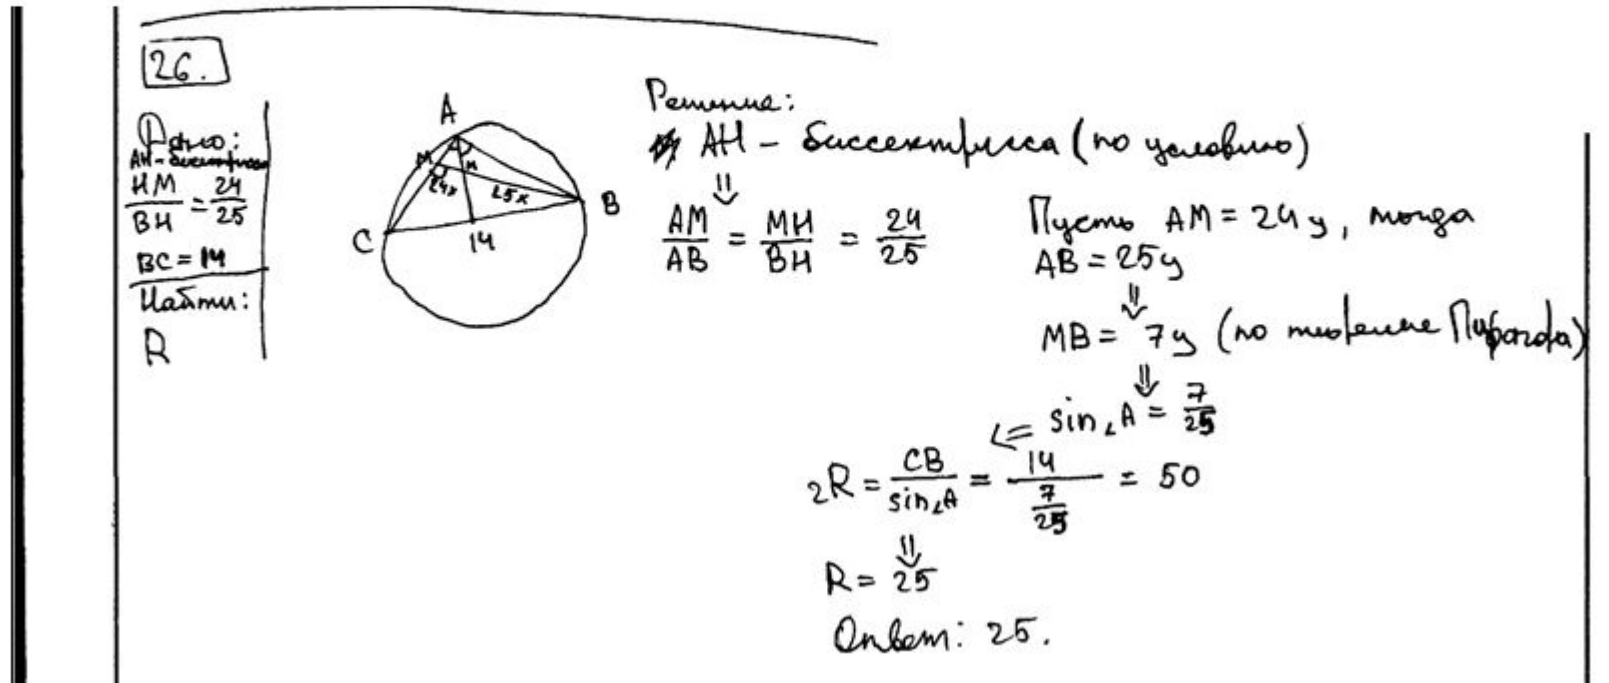 26.
Дано:
AH - биссектриса
HM/BH = 24/25
BC = 14
Найти:
R
A
M
H
24x
25x
B
C
14
Решение:
AH - биссектриса (по условию)
⇓
AM/AB = MH/BH = 24/25
Пусть AM = 24y, тогда
AB = 25y
⇓
MB = 7y (по теореме Пифагора)
⇓
⇐ sin∠A = 7/25
2R = CB/sin∠A = 14/(7/25) = 50
⇓
R = 25
Ответ: 25.